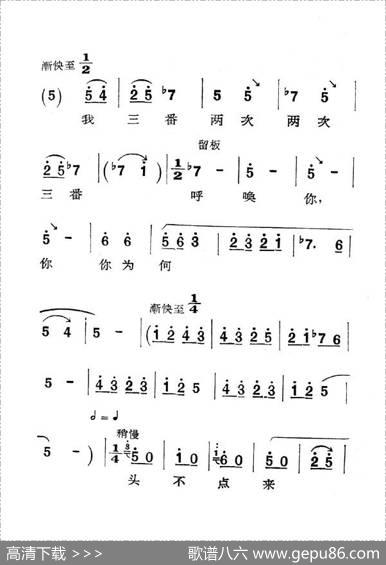 漸快至 1/2
(5) | 5 4 | 2 5 ♭7 | 5 5 | ♭7 5 |
我 三 番 两 次 两 次
留板
2 5 ♭7 | (♭7 1) | 1/2 ♭7 - | 5 - | 5 - |
三 番 呼 唤 你,
5 - | 6 6 | 5 6 3 | 2 3 2 1 | ♭7. 6 |
你 你 为 何
漸快至 1/4
5 4 | 5 - | (1 2 4 3 | 4 3 2 5 | 2 1 ♭7 6 |
5 - | 4 3 2 3 | 1 2 5 | 4 3 2 3 | 1 2 5 |
稍慢
5 - ) | 1/4 5 0 | 1 0 | 6 0 | 5 0 | 2 5 |
头 不 点 来
高清下载 >>>
歌谱八六 www.gepu86.com